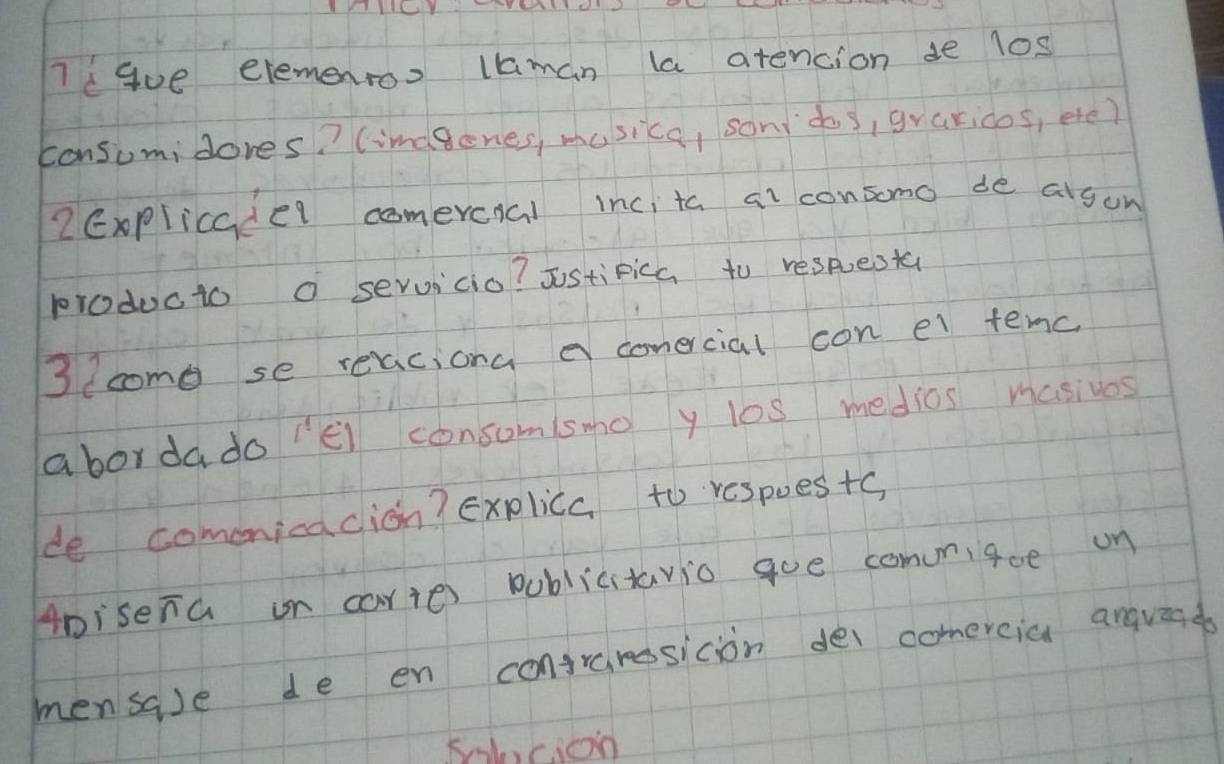 Taller analisis de comerciales
1¿ que elementos llaman la atencion de los
consumidores? (imagenes, musica, sonidos, graficos, etc)
2 Explica ¿el comercial incita al consumo de algun
producto o servicio? Justifica tu respuesta
3¿ como se relaciona el comercial con el tema
abordado "El consumismo y los medios masivos
de comunicación? Explica tu respuesta
4 Diseña un cartel publicitario que comunique un
mensaje de en contraposición del comercial
Solucion